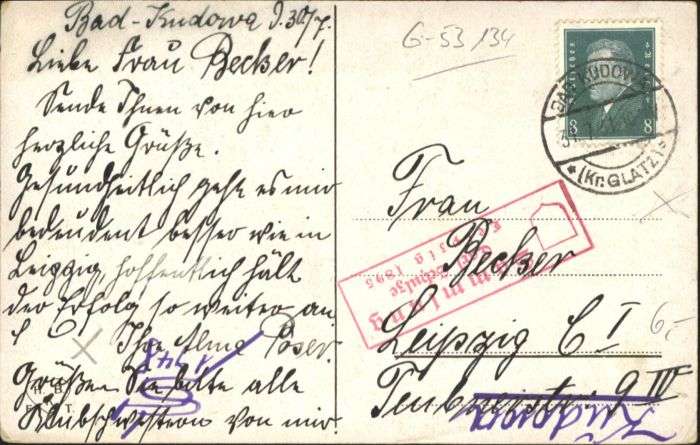 Bad-Kudowa d. 30/7.
Liebe Frau Becker!
Sende Ihnen von hier
herzliche Grüße.
Gesundheitlich geht es mir
bedeutent besser wie in
Leipzig, hoffentlich hält
der Erfolg so weiter an
Ihre Alma Poser.
Grüßen Sie bitte alle
Klubschwestern von mir.
G-53 134
BAD KUDOWA
(Kr. GLATZ)
8 8
Frau
Becker
Leipzig C I
Teubnerstr. 9 IV
Sammlung
Schulze
Leipzig 1895
6,-
Kudowa